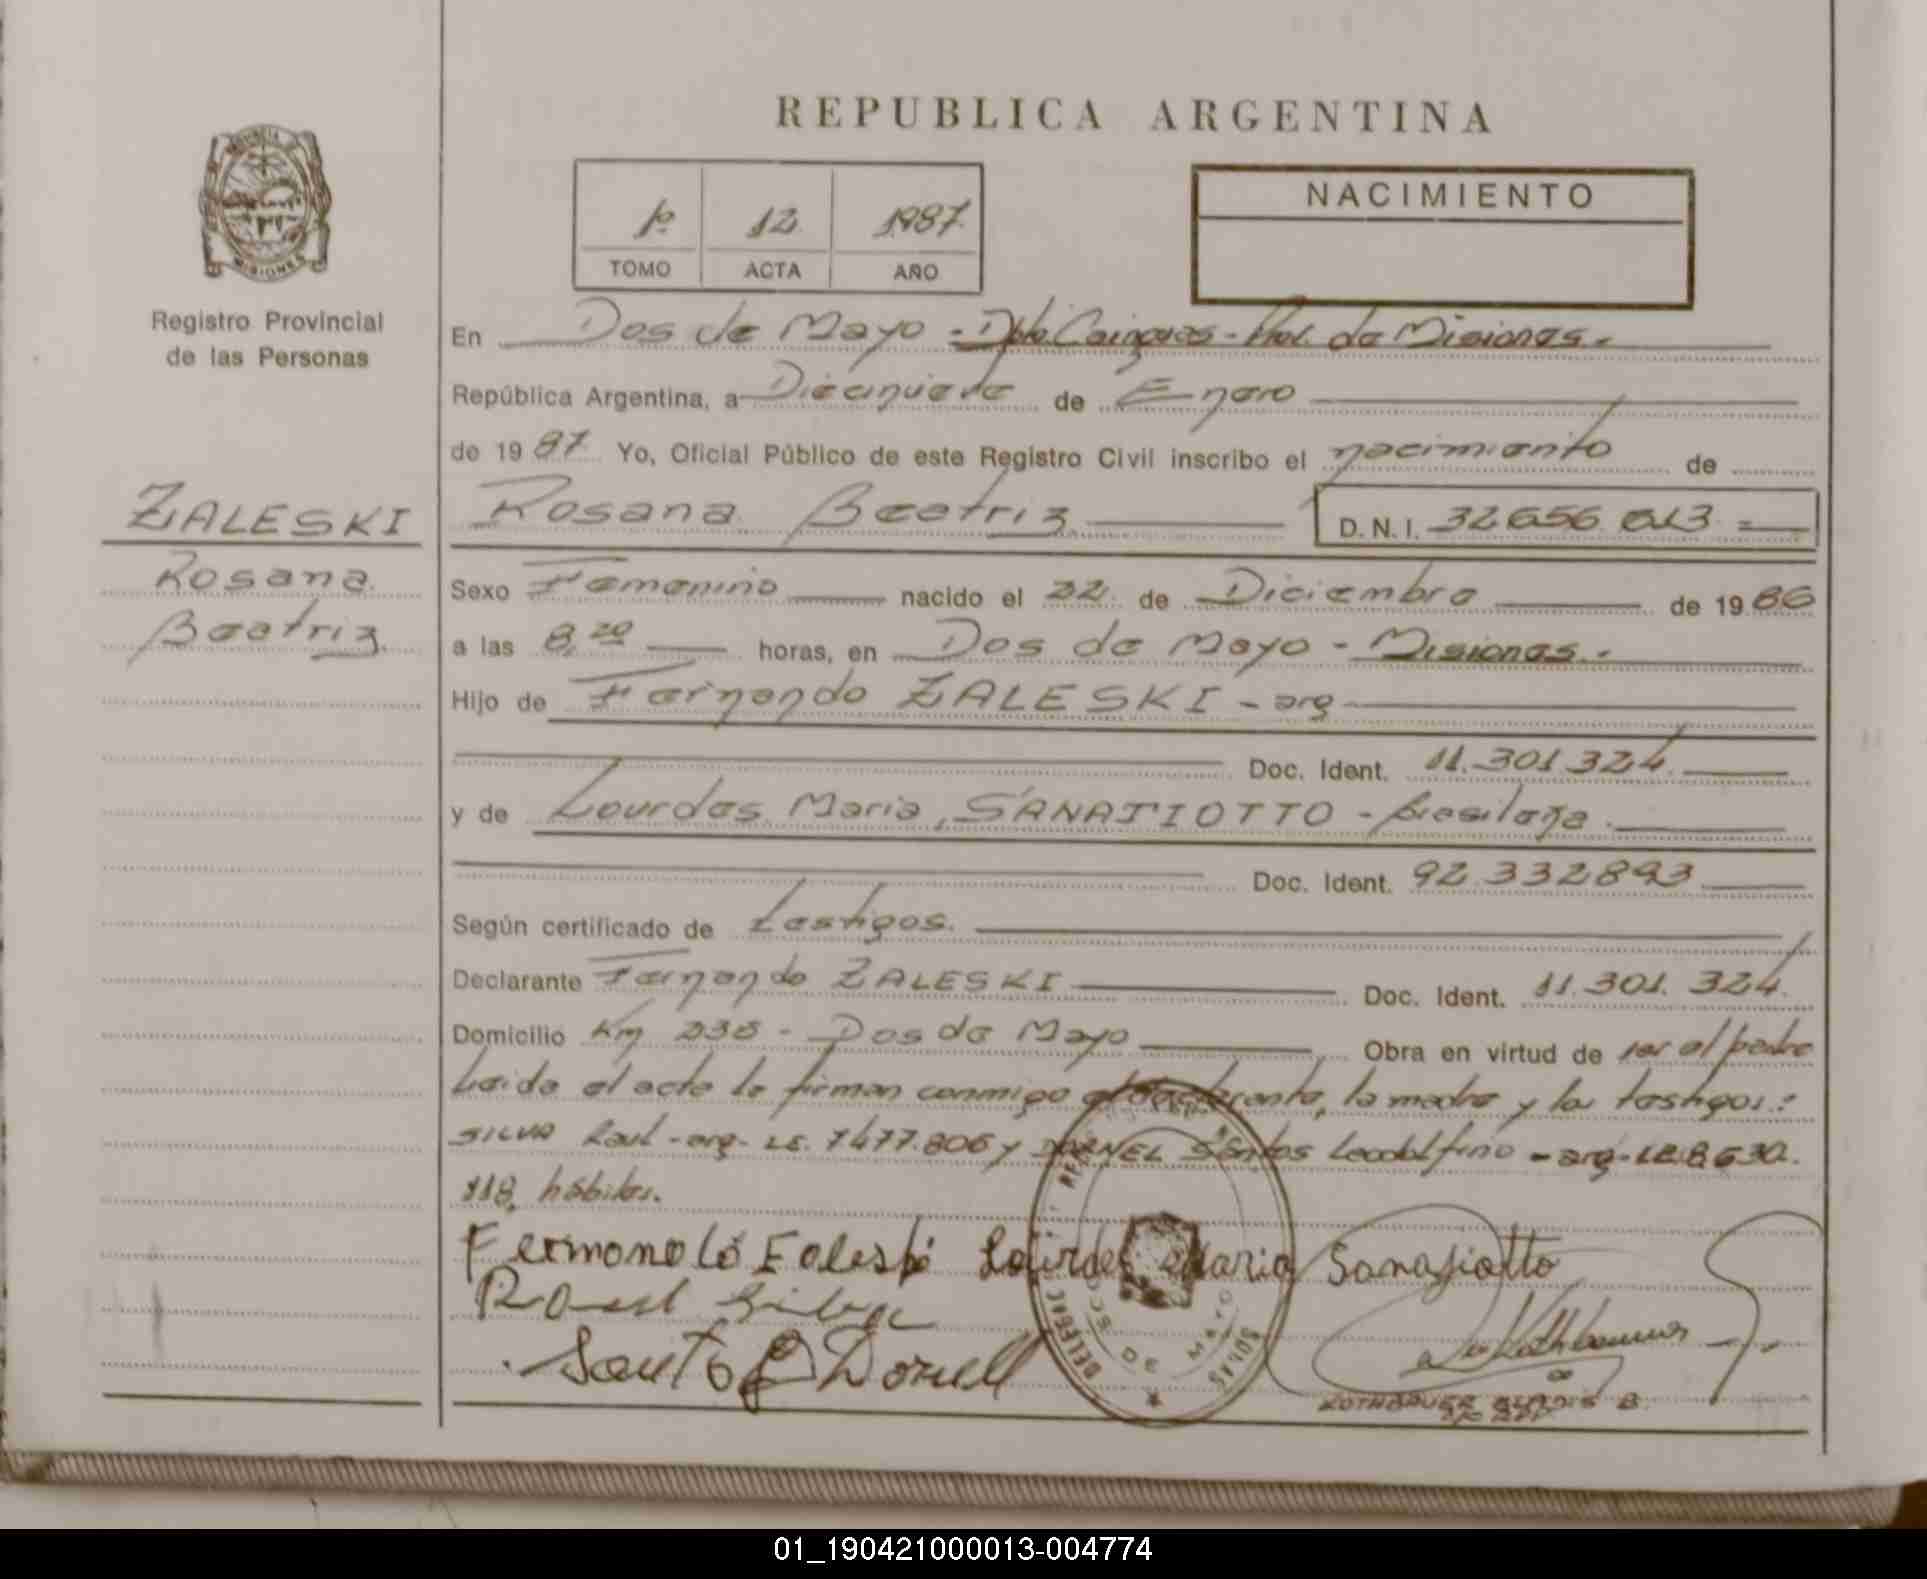 REPUBLICA ARGENTINA
NACIMIENTO
1º 12 1987
TOMO ACTA AÑO
MISIONES
Registro Provincial
de las Personas
ZALESKI
Rosana
Beatriz
En Dos de Mayo - Dpto Cainguas - Prov. de Misiones.-
República Argentina, a Diecinueve de Enero
de 1987 Yo, Oficial Público de este Registro Civil inscribo el nacimiento de
Rosana Beatriz D.N.I. 32656613
Sexo Femenino nacido el 22 de Diciembre de 1986
a las 8,20 horas, en Dos de Mayo - Misiones.-
Hijo de Fernando ZALESKI - arg
Doc. Ident. 11.301.324
y de Lourdes Maria, SANAJIOTTO - brasileña
Doc. Ident. 92.332893
Según certificado de testigos.
Declarante Fernando ZALESKI Doc. Ident. 11.301.324
Domicilio Km 238 - Dos de Mayo Obra en virtud de ser el padre
Leida el acta la firman conmigo el declarante, la madre y los testigos:
SILVA Raul - arg - LE. 7477.806 y DORNEL Santos Leodolfino - arg - LE 8.630.
118 hábiles.
Lourdes Maria Sanajiotto
Santo Dornell
DOS DE MAYO